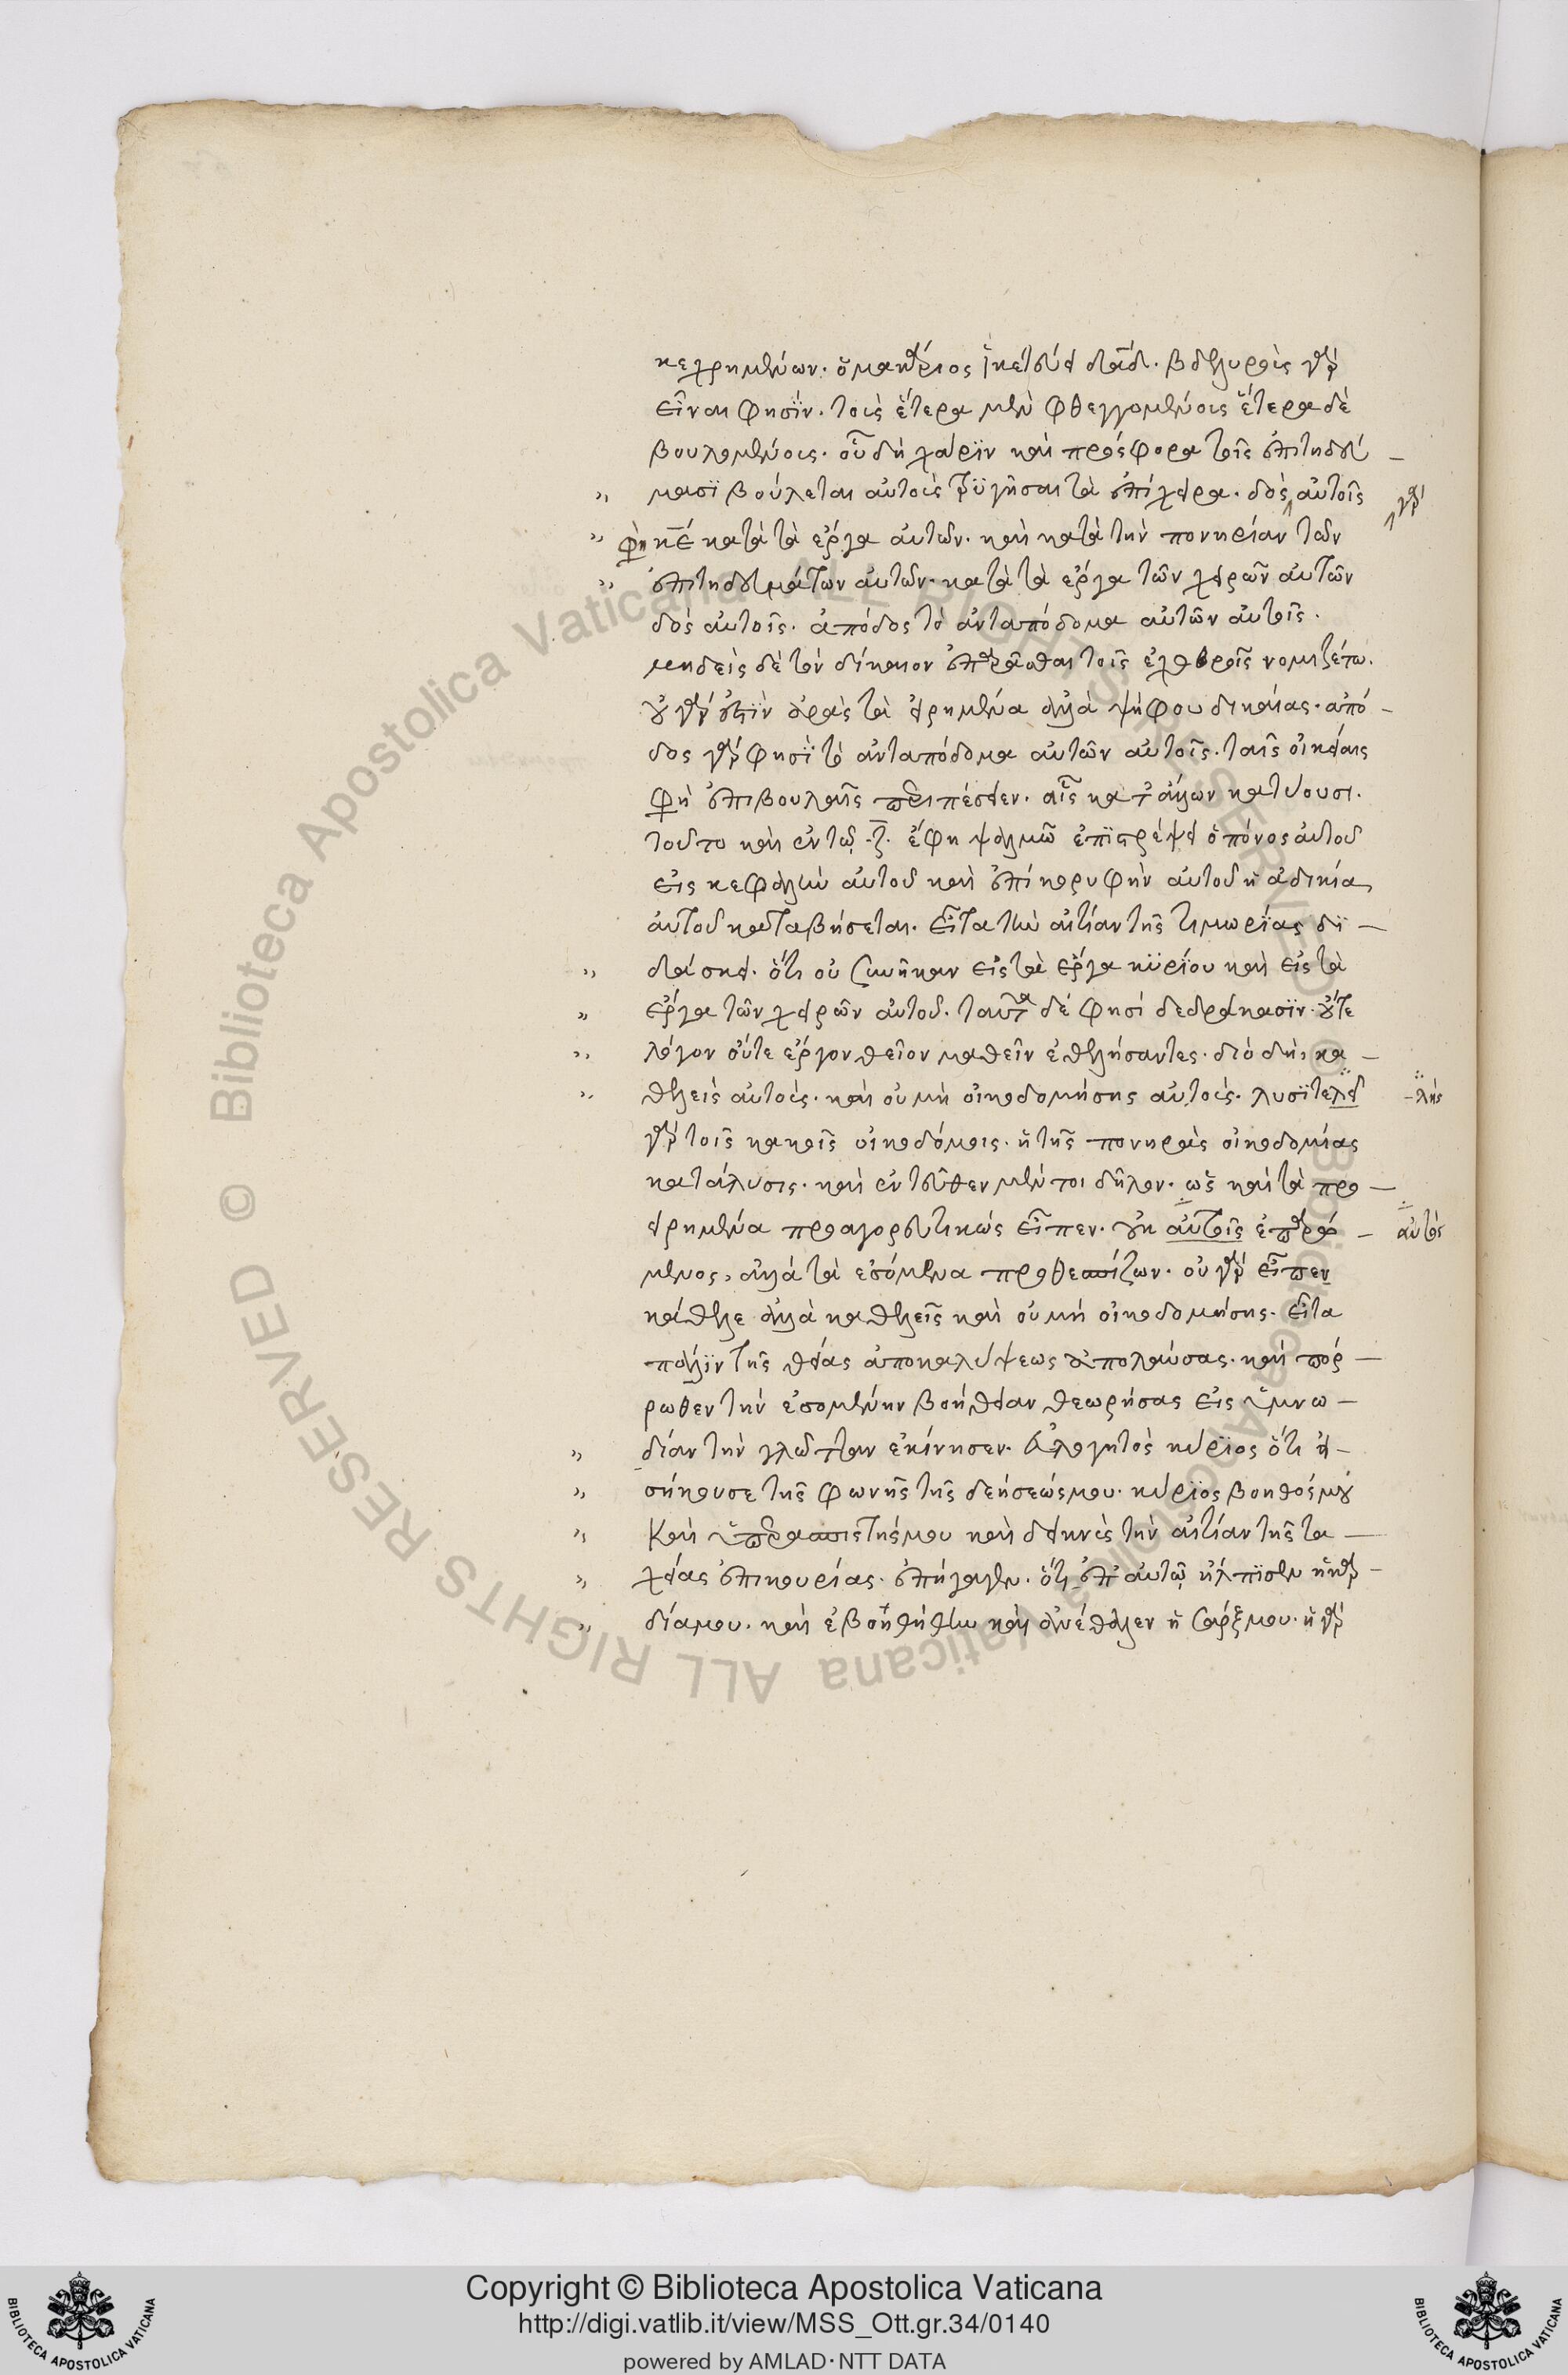 κεχρημένων. ὁ μακάριος ἱκετεύει δᾱδ. βδελυροὺς γὰρ
εἶναι φησΐν. τοὺς ἕτερα μὲν φθεγγομένους ἕτερα δὲ
βουλομένους. οὗ δὴ χάρϊν καὶ πρόσφορα τοῖς ἐπιτηδεύ –
" μασϊ βούλεται αὐτοὺς τρϋγῆσαι τὰ ἐπίχειρα. δὸς αὐτοῖς γὰρ
" φη κ̅ε̅ κατὰ τὰ ἔργα αὐτῶν. καὶ κατὰ τὴν πονηρίαν τῶν
" ἐπιτηδευμάτων αὐτῶν. κατὰ τὰ ἔργα τῶν χειρῶν αὐτῶν
δὸς αὐτοῖς. ἀπόδος τὸ ἀνταπόδομα αὐτῶν αὐτοῖς.
μηδεὶς δὲ τὸν δίκαιον ἐπαρᾶσθαι τοῖς ἐχθροῖς νομιζέτω.
οὐ γάρ ἐστϊν ἀρᾶς τὰ εἰρημένα ἀλλὰ ψήφου δικαίας. ἀπό –
δος γάρ φησϊ τὸ ἀνταπόδομα αὐτῶν αὐτοῖς. ταῖς οἰκείαις
φη ἐπιβουλαῖς περιπέσειεν. αἷς κατ ἀλλων κατύουσι.
τοῦτο καὶ ἐν τῷ .ζ. ἔφη ψαλμῷ ἐπϊστρέψει ὁ πόνος αὐτοῦ
εἰς κεφαλὴν αὐτοῦ καὶ ἐπὶ κορυφὴν αὐτοῦ ἡ ἀδικία
αὐτοῦ καταβήσεται. εἶτα τὴν αἰτίαν τῆς τιμωρϊας δϊ –
" δάσκει. ὅτι οὐ συνῆκαν εἰς τὰ ἔργα κϋρϊου καὶ εἰς τὰ
" ἔργα τῶν χειρῶν αὐτοῦ. ταῦτα δέ φησί δεδράκασϊν. οὔτε
" λόγον οὔτε ἔργον θεῖον μαθεῖν ἐθελήσαντες. διὸ δὴ, κα –
" θελεῖς αὐτοὺς. καὶ οὐ μὴ οἰκοδομήσης αὐτοὺς. λυσϊτελεῖ – λὴς
γὰρ τοῖς κακοῖς οἰκοδόμοις. ἡ τῆς πονηρᾶς οἰκοδομίας
κατάλυσις. καὶ ἐντεῦθεν μέντοι δῆλον. ὡς καὶ τὰ προ –
ειρημένα προαγορευτικῶς εἶπεν. οὐκ αὐτοῖς ἐπαρώ – αὐτὸς
μενος, ἀλλὰ τὰ ἐσόμενα προθεσπίζων. οὐ γὰρ εἶπεν
κάθελε ἀλλὰ καθελεῖς καὶ οὐ μὴ οἰκοδομήσης. εἶτα
πάλϊν τῆς θείας ἀποκαλύψεως ἀπολαύσας. καὶ πόρ –
ρωθεν τὴν ἐσομένην βοήθειαν θεωρήσας εἰς ὑμνω –
" δίαν τὴν γλῶτταν ἐκίνησεν. εὐλογητὸς κύρϊος ὅτι εἰ –
" σήκουσε τῆς φωνῆς τῆς δεήσεώς μου. κύρϊος βοηθός μου
" Καὶ ὑπερασπιστής μου καὶ δεικνὺς τὴν αἰτίαν τῆς τα –
" χείας ἐπικουρίας. ἐπήγαγεν. ὅτι ἐπ αὐτῷ ἤλπϊσεν ἡ καρ –
" δία μου. καὶ ἐβοηθήθην καὶ ἀνέθαλεν ἡ σάρξ μου. ἡ γὰρ
Copyright © Biblioteca Apostolica Vaticana
http://digi.vatlib.it/view/MSS_Ott.gr.34/0140
powered by AMLAD·NTT DATA